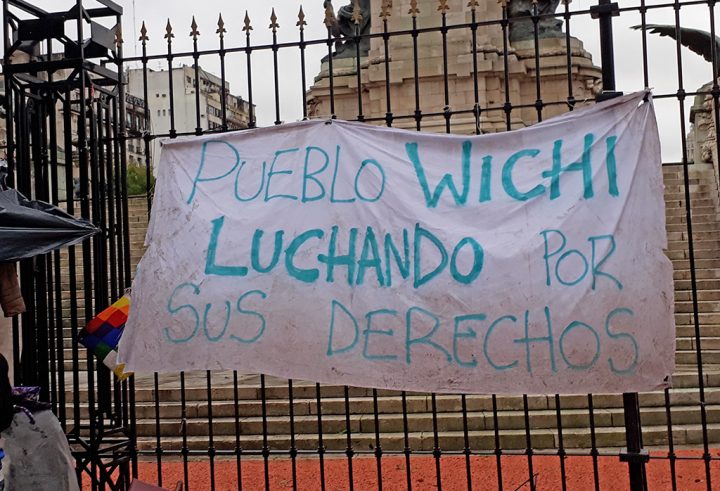 PUEBLO WICHI
LUCHANDO POR
SUS DERECHOS